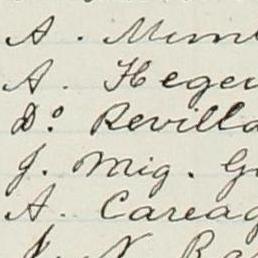 A. Mim
A. Heger
Dº Revilla
J. Mig. G
A. Careag
J. N. Ra